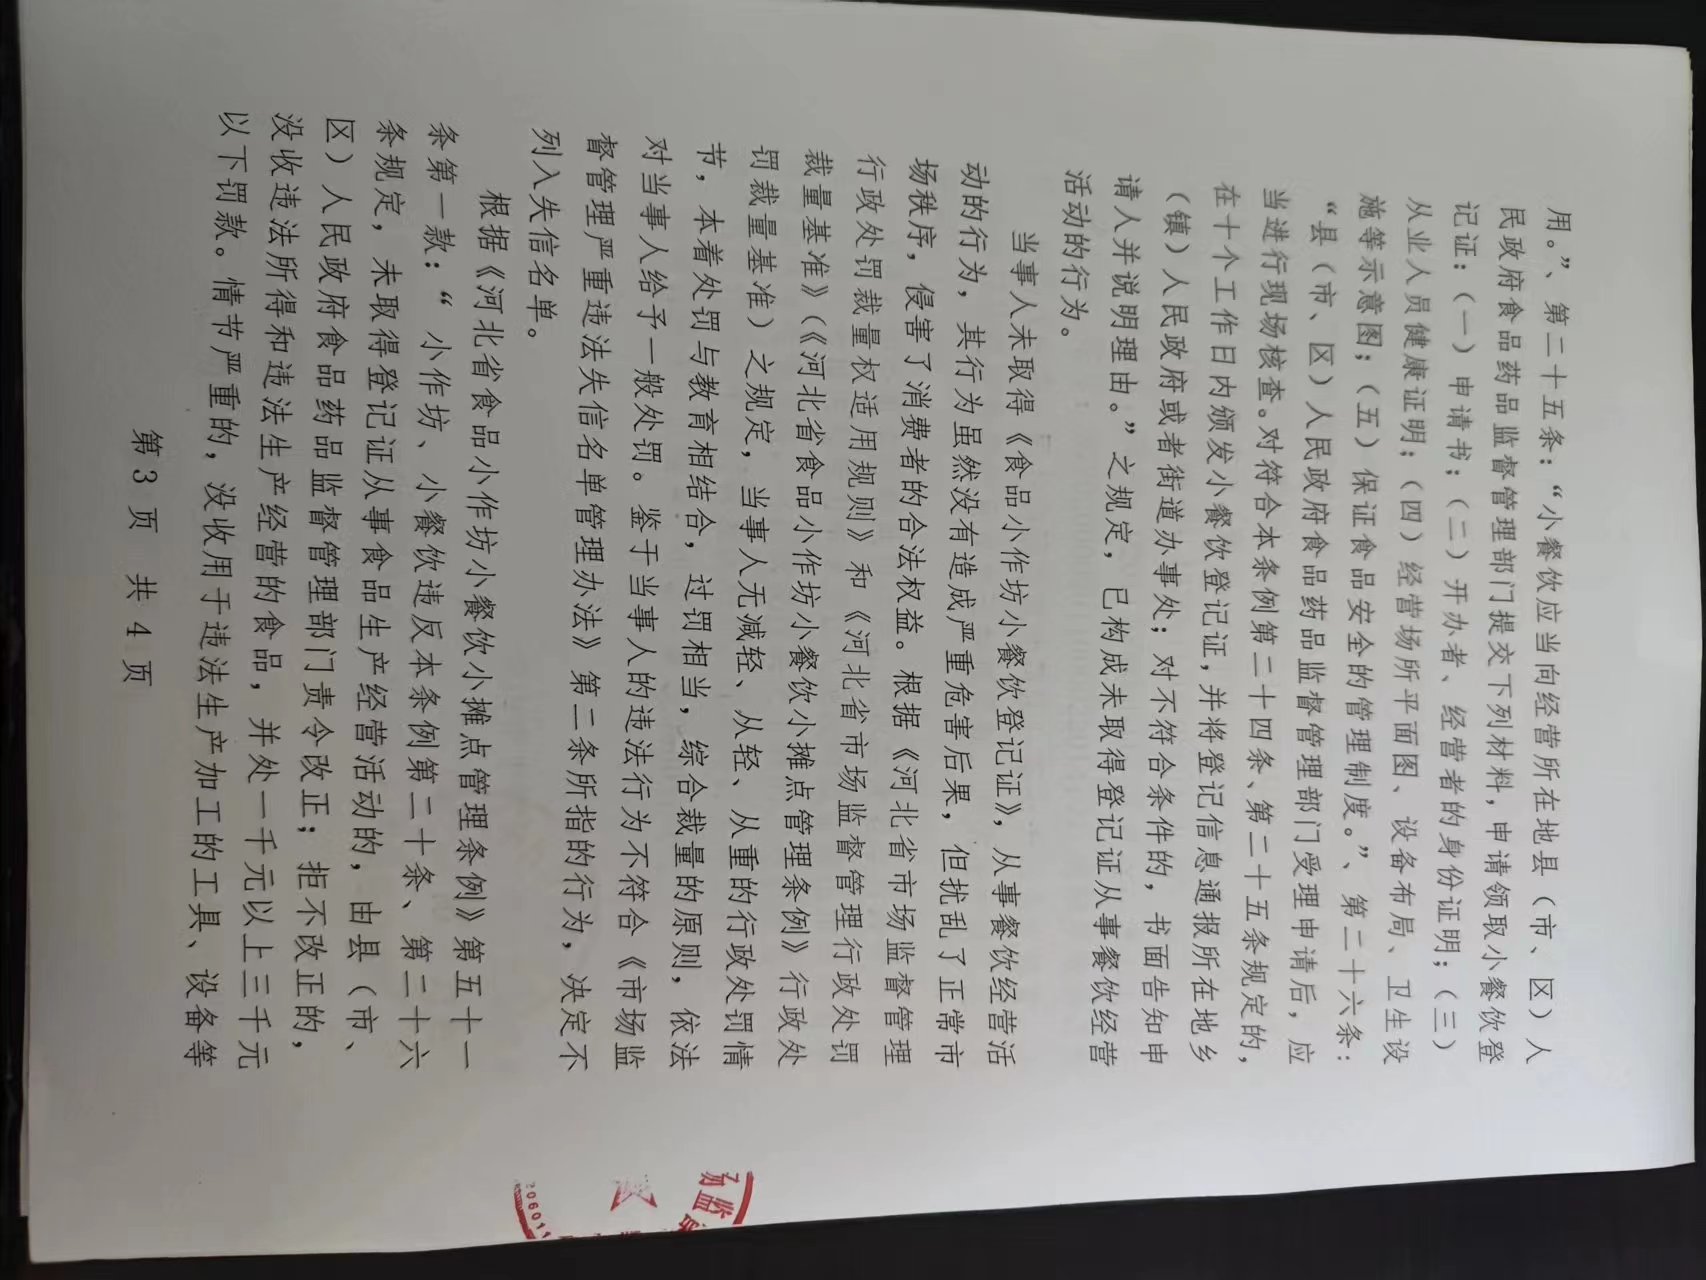 用。”、第二十五条：“小餐饮应当向经营所在地县（市、区）人
民政府食品药品监督管理部门提交下列材料，申请领取小餐饮登
记证：（一）申请书；（二）开办者、经营者的身份证明；（三）
从业人员健康证明；（四）经营场所平面图、设备布局、卫生设
施等示意图；（五）保证食品安全的管理制度。”、第二十六条：
“县（市、区）人民政府食品药品监督管理部门受理申请后，应
当进行现场核查。对符合本条例第二十四条、第二十五条规定的，
在十个工作日内颁发小餐饮登记证，并将登记信息通报所在地乡
（镇）人民政府或者街道办事处；对不符合条件的，书面告知申
请人并说明理由。”之规定，已构成未取得登记证从事餐饮经营
活动的行为。
当事人未取得《食品小作坊小餐饮登记证》，从事餐饮经营活
动的行为，其行为虽然没有造成严重危害后果，但扰乱了正常市
场秩序，侵害了消费者的合法权益。根据《河北省市场监督管理
行政处罚裁量权适用规则》和《河北省市场监督管理行政处罚
裁量基准》（《河北省食品小作坊小餐饮小摊点管理条例》行政处
罚裁量基准）之规定，当事人无减轻、从轻、从重的行政处罚情
节，本着处罚与教育相结合，过罚相当，综合裁量的原则，依法
对当事人给予一般处罚。鉴于当事人的违法行为不符合《市场监
督管理严重违法失信名单管理办法》第二条所指的行为，决定不
列入失信名单。
根据《河北省食品小作坊小餐饮小摊点管理条例》第五十一
条第一款：“小作坊、小餐饮违反本条例第二十条、第二十六
条规定，未取得登记证从事食品生产经营活动的，由县（市、
区）人民政府食品药品监督管理部门责令改正；拒不改正的，
没收违法所得和违法生产经营的食品，并处一千元以上三千元
以下罚款。情节严重的，没收用于违法生产加工的工具、设备等
第 3 页 共 4 页
场监